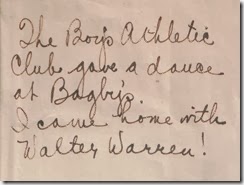 The Boys Athletic
Club gave a dance
at Bagby's.
I came home with
Walter Warren!